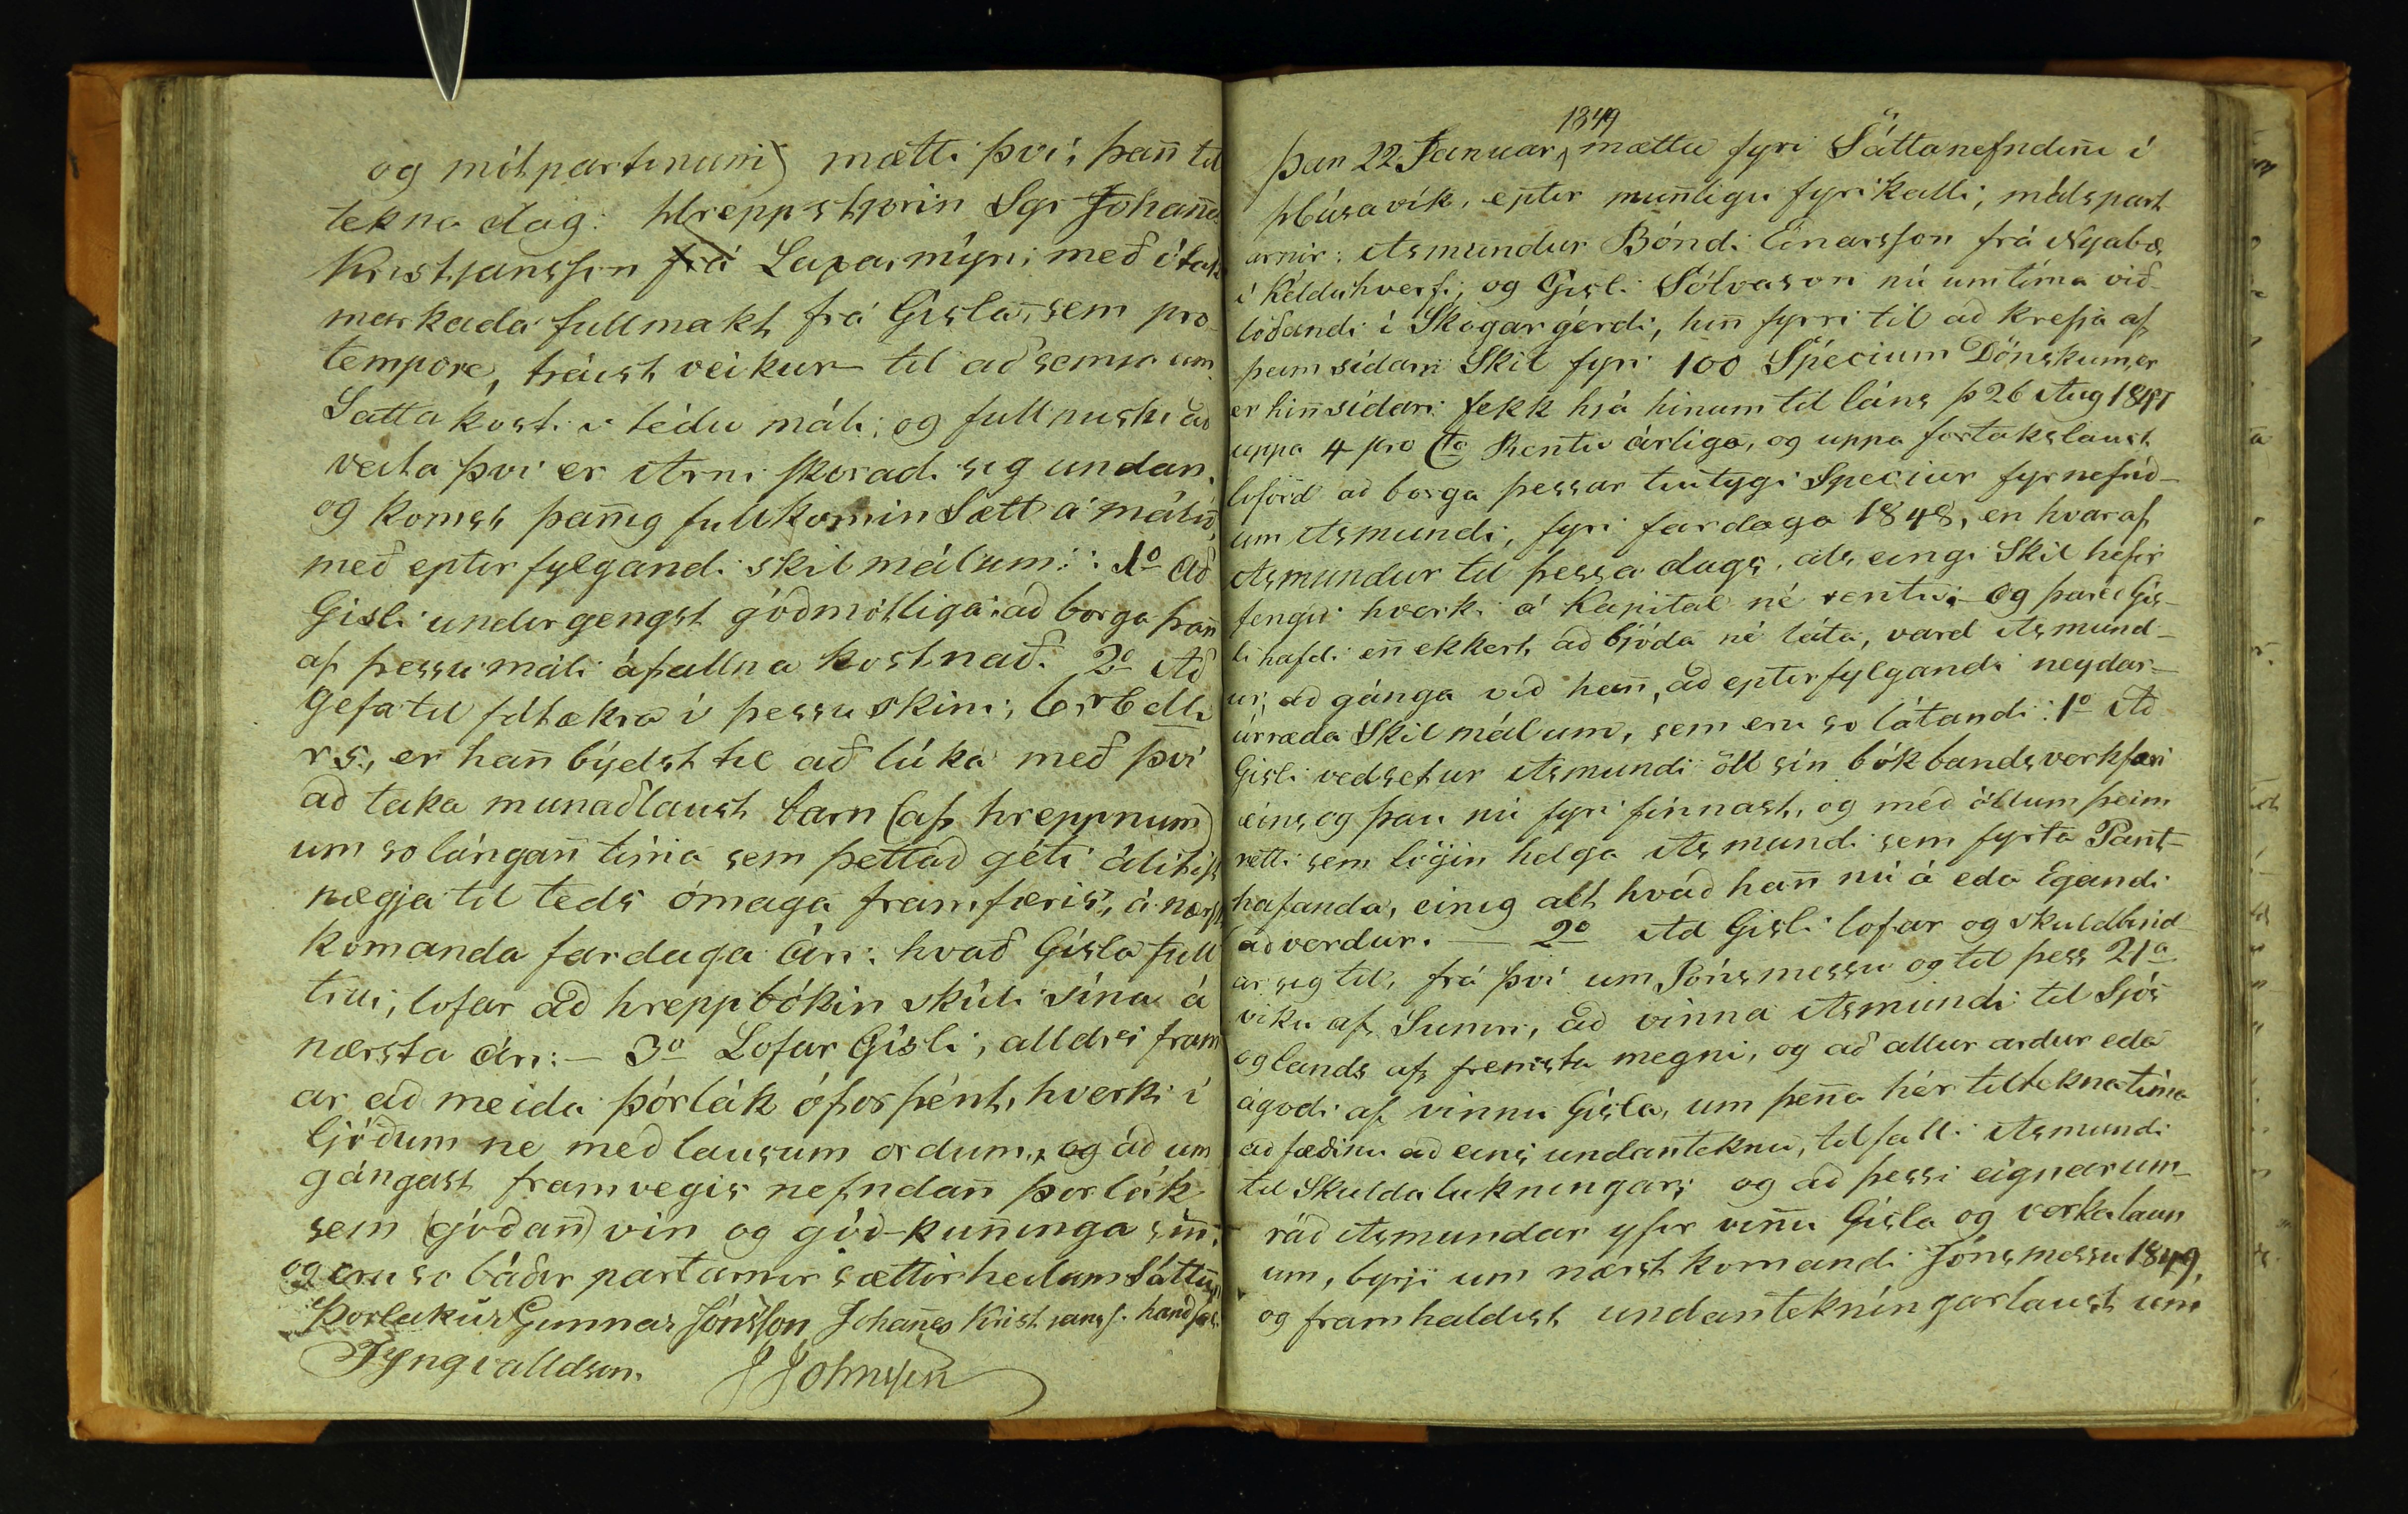 og mótpartinum) mætti því, þan̄ til
tekna dag: Hreppstjórin Sgr Johan̄es
Kristjansson frá Laxamýri; með ótak
markada fullmakt frá Gisla, sem pro
tempore, tráist veikur til að semia um
Sátta kosti i tédu máli; og fullnustu að
veita því er Arni skoradi sig undan,
og komst þan̄ig fullkomin Sætt á málið,
með eptir fylgandi skilmálum: 1o Að
Gisli undirgengst góðmótliga að borga þan̄
af þessu máli áfallna kostnað. 2o Að
Gefa til fátækra i þessu skini;
r S., er han̄ býdst til að lúka með því
að taka munaðlaust barn (af hreppnum)
um so lángan̄ tíma sem þettað géti álitist
nægja til teds ómaga framfæris, á næst
komanda fardaga ári: hvað Gísla full
trúi, lofar að hreppbókin skúli sína á
næsta ári: — 3o Lofar Gísli, alldrei fram
ar að meida þórlák óforþént, hverki í
ljóðum ne með lausum ordum, og að um
gángast framvegis nefndan̄ þorlák
sem (góðan̄) vin og góð-kun̄inga sin̄;
og eru so báðir partarnir sættir heilum Sáttum
Þorlakur Gunnar Jónsson Johan̄es Kristjanss. handsal.
Tyngvalldson. JJohnsen
1849
Þan 22 Januar, mættu fyri Sáttanefndin̄i í
Húsavík, eptir mun̄ligu fyrikalli, málspart
arnir: Asmundur Bóndi Einarsson frá Nyabæ
í Kelduhverfi, og Gisli Sólvason nú um tíma við
loðandi í Skógargérdi, hin̄ fyrri til að krefja af
þeim sídari Skil fyri 100 Specium Dönskum, er
er hin̄ sídari fekk hjá hinum til láns þ 26 Aug 1847
uppa 4 pro Cto Rentu árliga, og uppa fortakslaust
loforð að borga þessar tiutygi Speciur fyrnefnd-
um Asmundi, fyri fardaga 1848, en hvar af
Asmundur til þessa dags, als eingi Skil hefir
fengið hverki á Kapital né rentu; og þareð Gis-
li hafdi en̄ ekkert að bjóda né láta, vard Asmund-
ur, að gánga við han̄, að eptirfylgandi neydar-
úrræda Skilmálum, sem eru so látandi: 1o Að
Gisli vedsetur Asmundi öll sín bókbandsverkfæri
eins og þau nú fyri finnast, og með öllum þeim
rétti sem lögin helga Asmundi sem fyrsta Pant-
hafanda, einig alt hvað han̄ nú á eda Egandi
að verdur. — 2o Ad Gisli lofar og skuldbind
ar sig til, frá því um Jónsmessu og til þess 21a
viku af Sumri, að vinna Asmundi til Sjós
og lands af fremsta megni, og að allur ardur eda
ágodi af vinnu Gisla, um þen̄a hér tiltekna tíma
að fædinu að eins undanteknu, tilfalli Asmundi
til Skuldalukningar; og að þessi eignarum-
ráð Asmundar yfir vin̄u Gisla og verkalaun
um, byrji um næst komandi Jónsmessu 1849,
og framhaldist undantekníngarlaust um